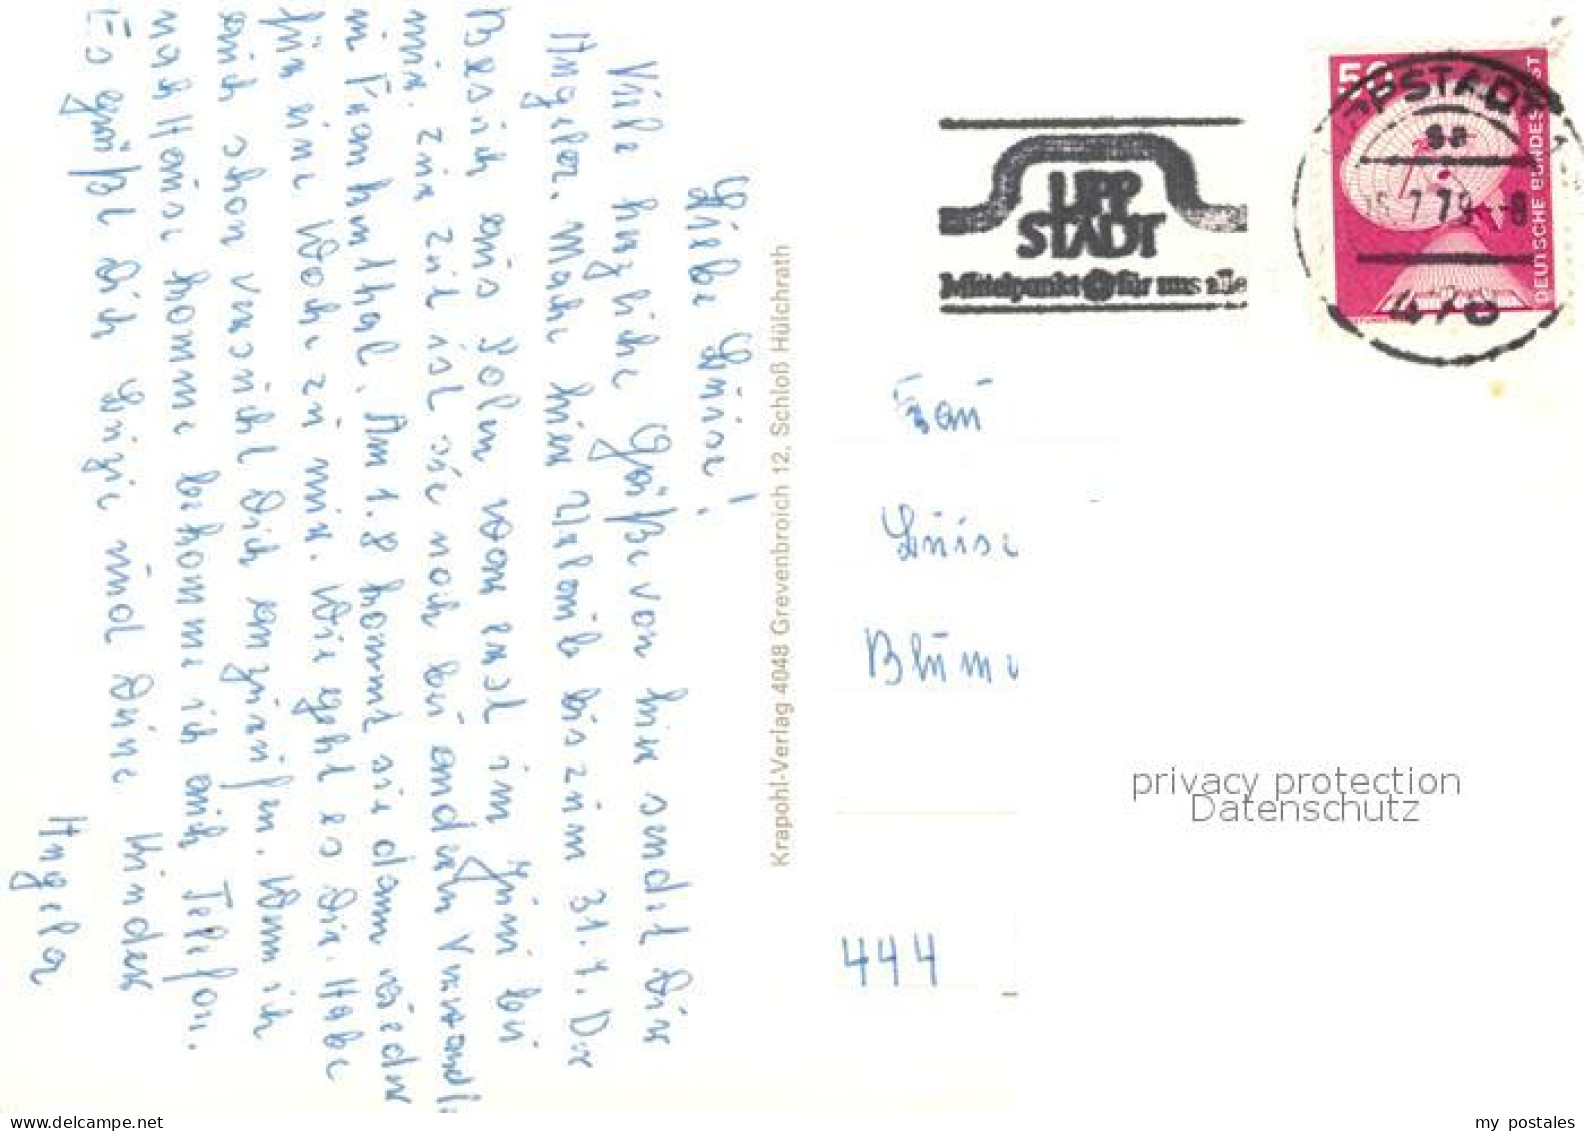 Liebe Luise!
Viele herzliche Grüße von hier sendet Dir
Angela. Mache hier Urlaub bis zum 31.7. Der
Besuch aus Polen war erst im Juni bei
mir. Zur Zeit ist sie noch bei andern Verwandt.
in Frankenthal. Am 1.8 kommt sie dann wieder
für eine Woche zu mir. Wie geht es Dir. Habe
auch schon versucht Dich anzurufen. Wenn ich
nach Hause komme bekomme ich auch Telefon.
Es grüßt Dich und Deine Kinder
Angela
Krapohl-Verlag 4048 Grevenbroich 12, Schloß Hülchrath
LIPP
STADT
Mittelpunkt für uns alle
50
DEUTSCHE BUNDESPOST
LIPPSTADT 1
sa
7.79-8
478
Frau
Luise
Blume
444
privacy protection
Datenschutz
my postales